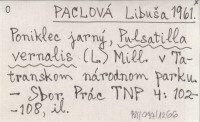 O
PACLOVÁ Libuša 1961.
Poniklec jarný, Pulsatilla
vernalis (L.) Mill. v Ta-
transkom národnom parku.
- Sbor. Prác TNP 4. 102-
-108, il.